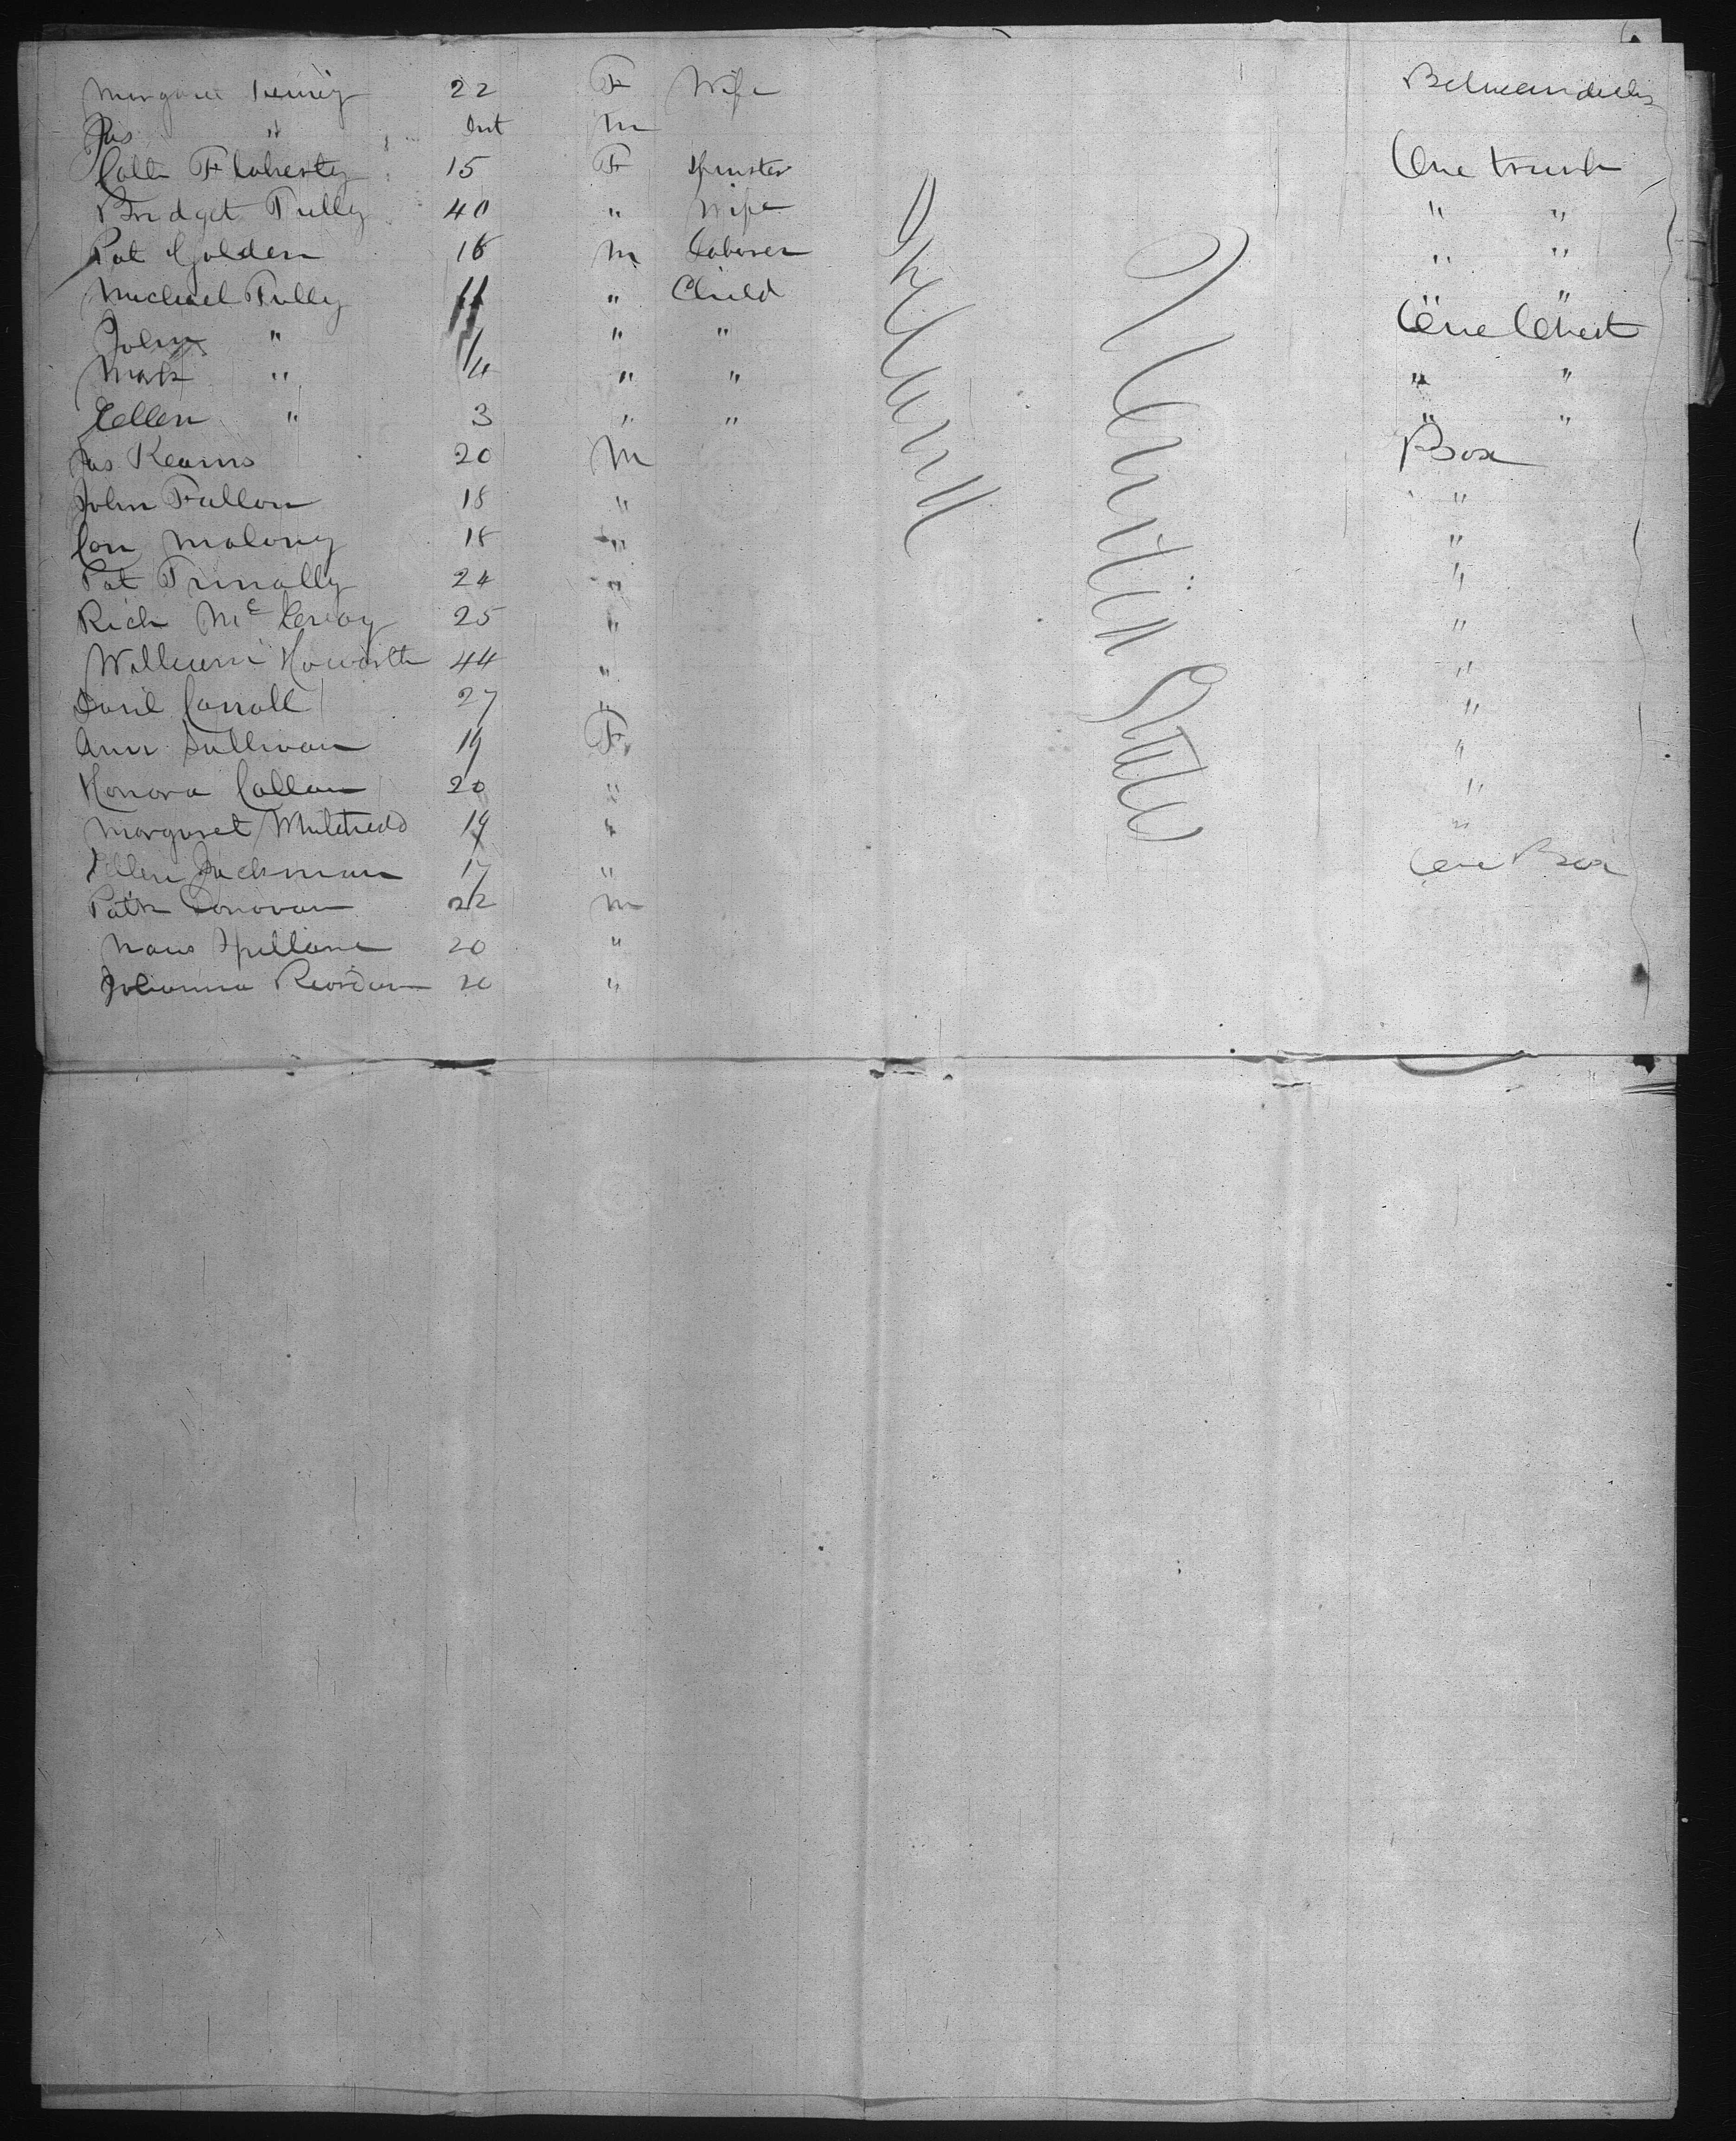 Margaret 22 F Wife
Jas " Inft M
Cath Flaherty 15 F Spinster One trunk
Bridget Tully 40 " Wife " "
Pat Golden 18 M Laborer " "
Michael Tully 11 " Child " "
John " " " One Chest
Mark " " " " "
Ellen " 3 " " " "
Jas Kearns 20 M Box
John Fallon 18 " "
Con Malony 18 " "
Pat 24 " "
Rich Mc Evoy 25 " "
William Howarth 44 " "
Danl Carroll 27 " "
Ann Sullivan 19 F "
Honora Callan 20 " "
Margaret 19 " "
Ellen Jackman 17 " One Box
Patk Donovan 22 M
Spillane 20 "
Johanna Reordan 20 "
Ireland
United States